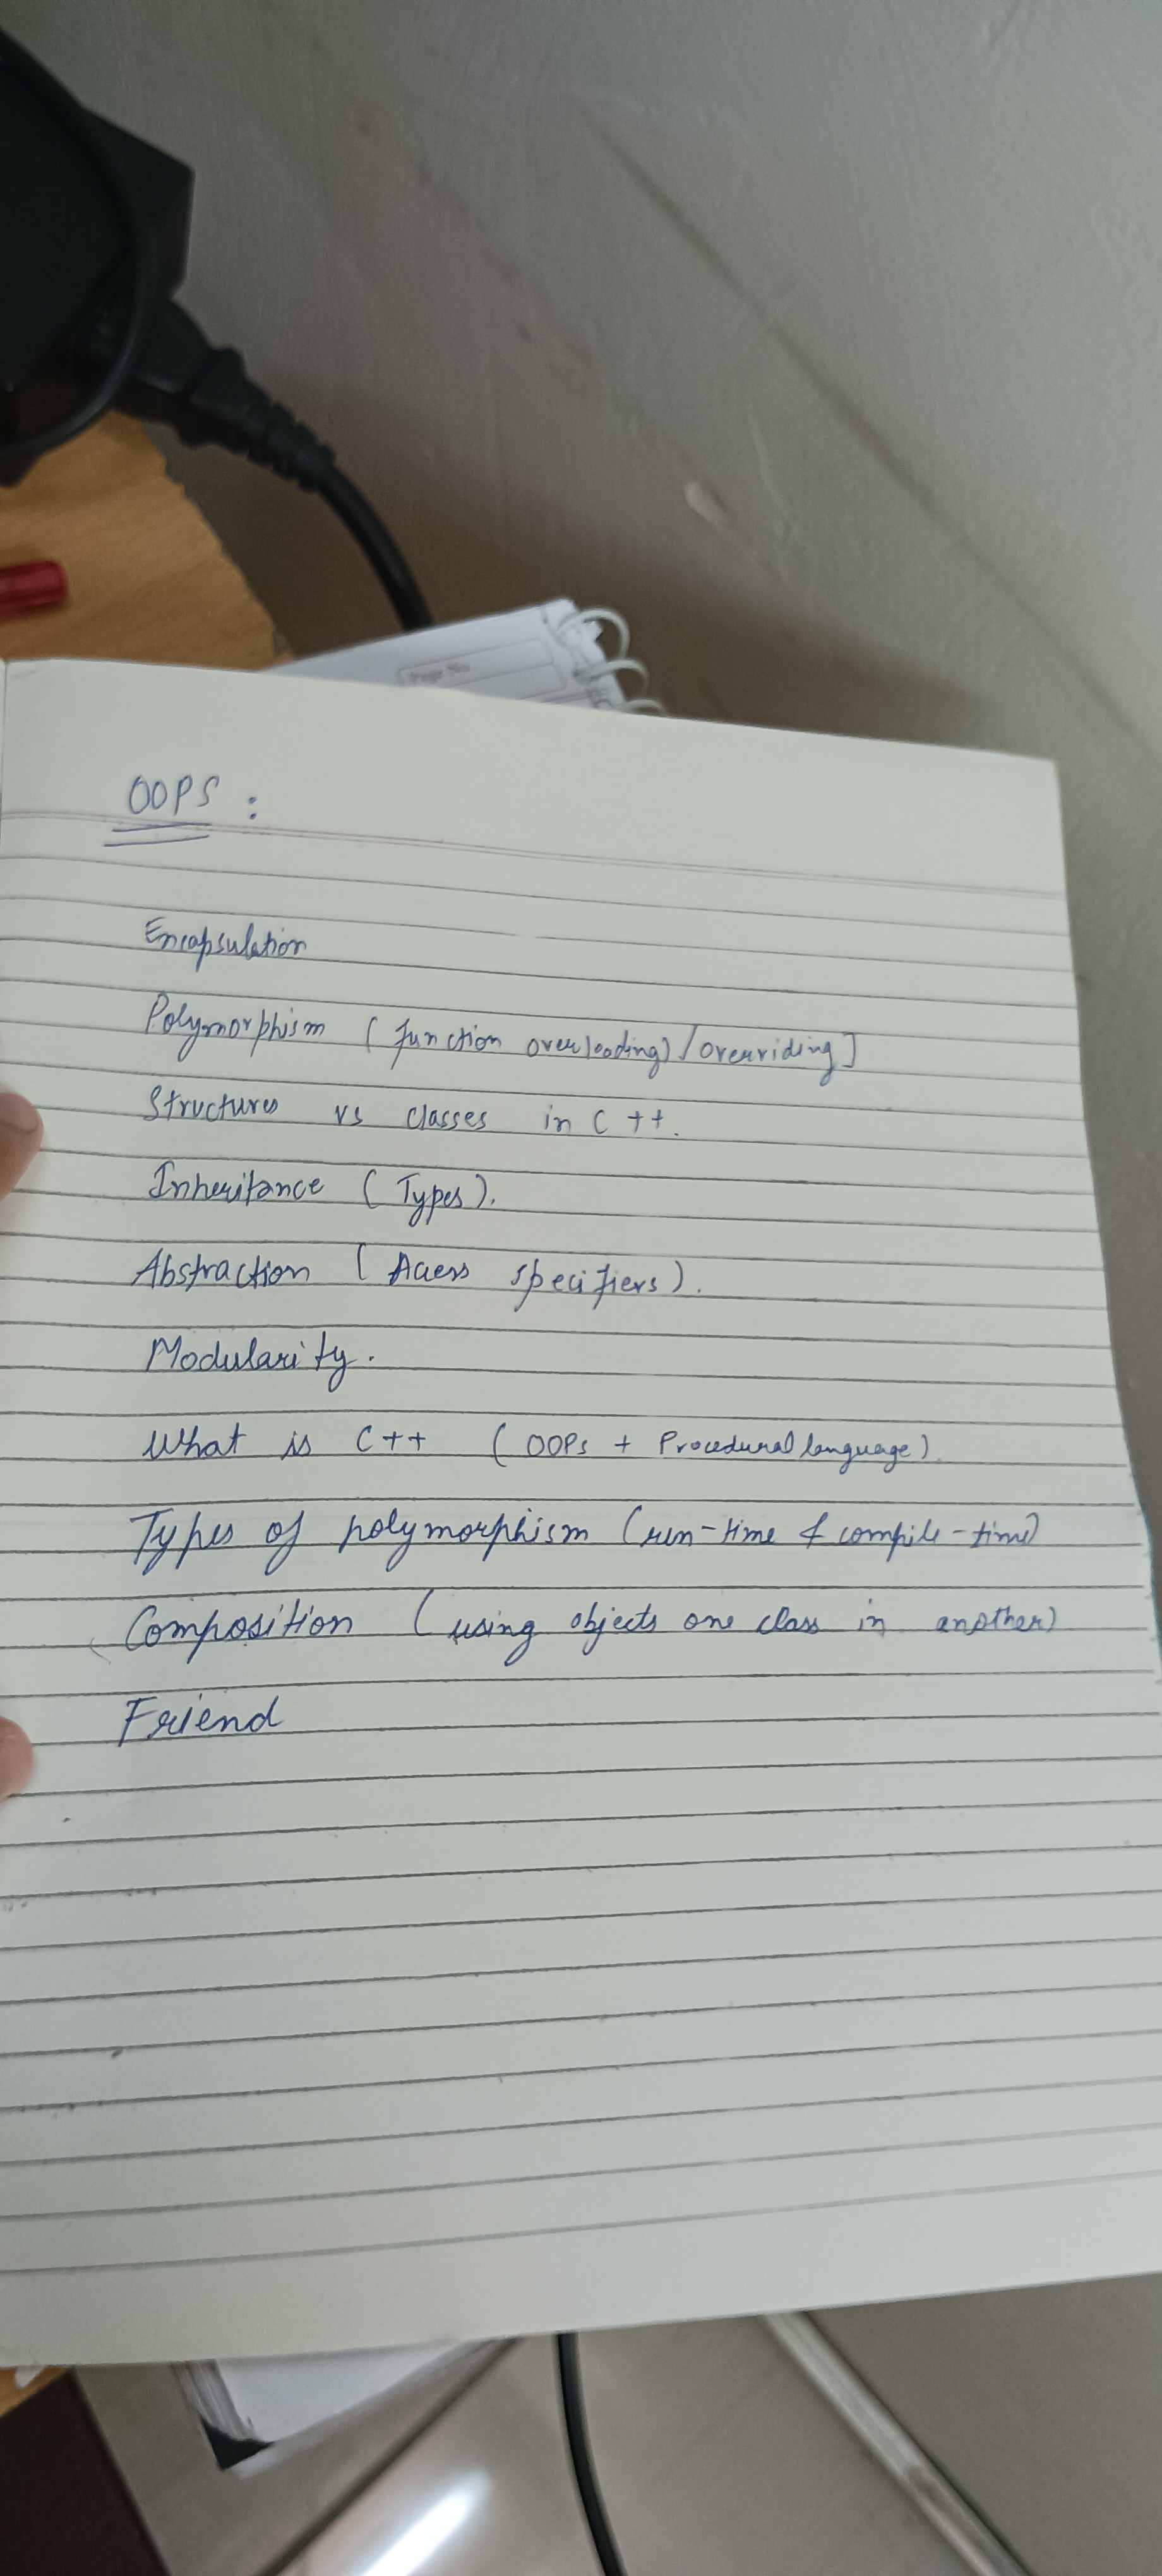 Page No.
OOPS :
Encapsulation
Polymorphism ( function overloading) / overriding ]
Structures vs classes in C ++.
Inheritance ( Types ).
Abstraction ( Acess specifiers ).
Modularity.
What is C++ ( OOPs + Procedural language )
Types of polymorphism (run-time & compile-time)
Composition ( using objects one class in another)
Friend